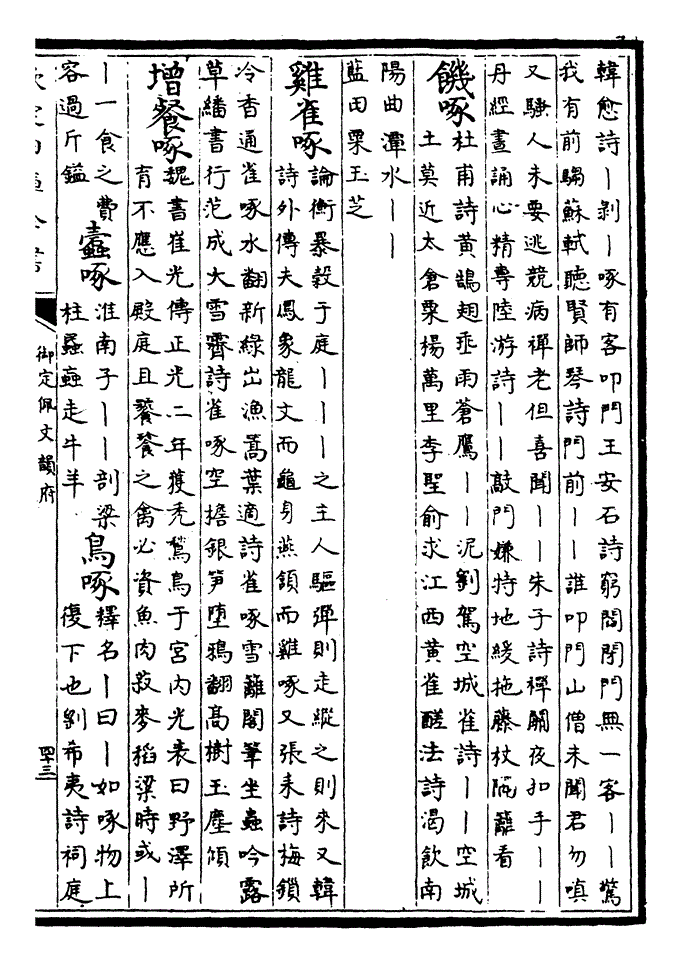 韓愈詩丨剥丨啄有客叩門王安石詩窮閻閉門無一客丨丨驚
我有前騶蘇軾聽賢師琴詩門前丨丨誰叩門山僧未聞君勿嗔
又騷人未要逃競病禪老但喜聞丨丨朱子詩禪關夜扣手丨丨
丹經晝誦心精專陸游詩丨丨敲門嫌特地緩拖藤杖隔籬看
饑啄
杜甫詩黄鵠翅垂雨蒼鷹丨丨泥劉駕空城雀詩丨丨空城
土莫近太倉粟楊萬里李聖俞求江西黄雀醝法詩渴飲南
陽曲潭水丨丨
藍田栗玉芝
雞雀啄
論衡暴穀于庭丨丨丨之主人驅彈則走縱之則來又韓
詩外傳夫鳳象龍文而龜身燕頷而雞啄又張耒詩梅鎖
冷香通雀啄水翻新綠出漁蒿葉適詩雀啄雪籬閣筆坐蟲吟露
草繙書行范成大雪霽詩雀啄空檐銀笋墮鴉翻髙樹玉塵傾
增餐啄
魏書崔光傳正光二年獲秃鶖鳥于宮内光表曰野澤所
有不應入殿庭且饕餮之禽必資魚肉菽麥稻粱時或丨
丨一食之費
容過斤鎰
蠹啄
淮南子丨丨剖梁
柱蟁䖟走牛羊
鳥啄
釋名丨曰丨如啄物上
復下也劉希夷詩祠庭
御定佩文韻府
四十三